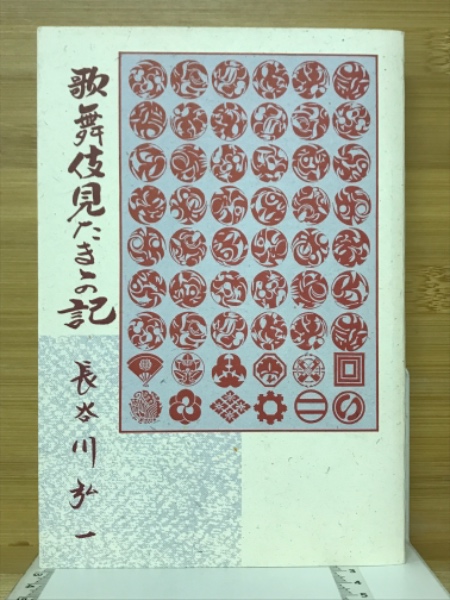 歌舞伎見たきの記
長谷川弘一